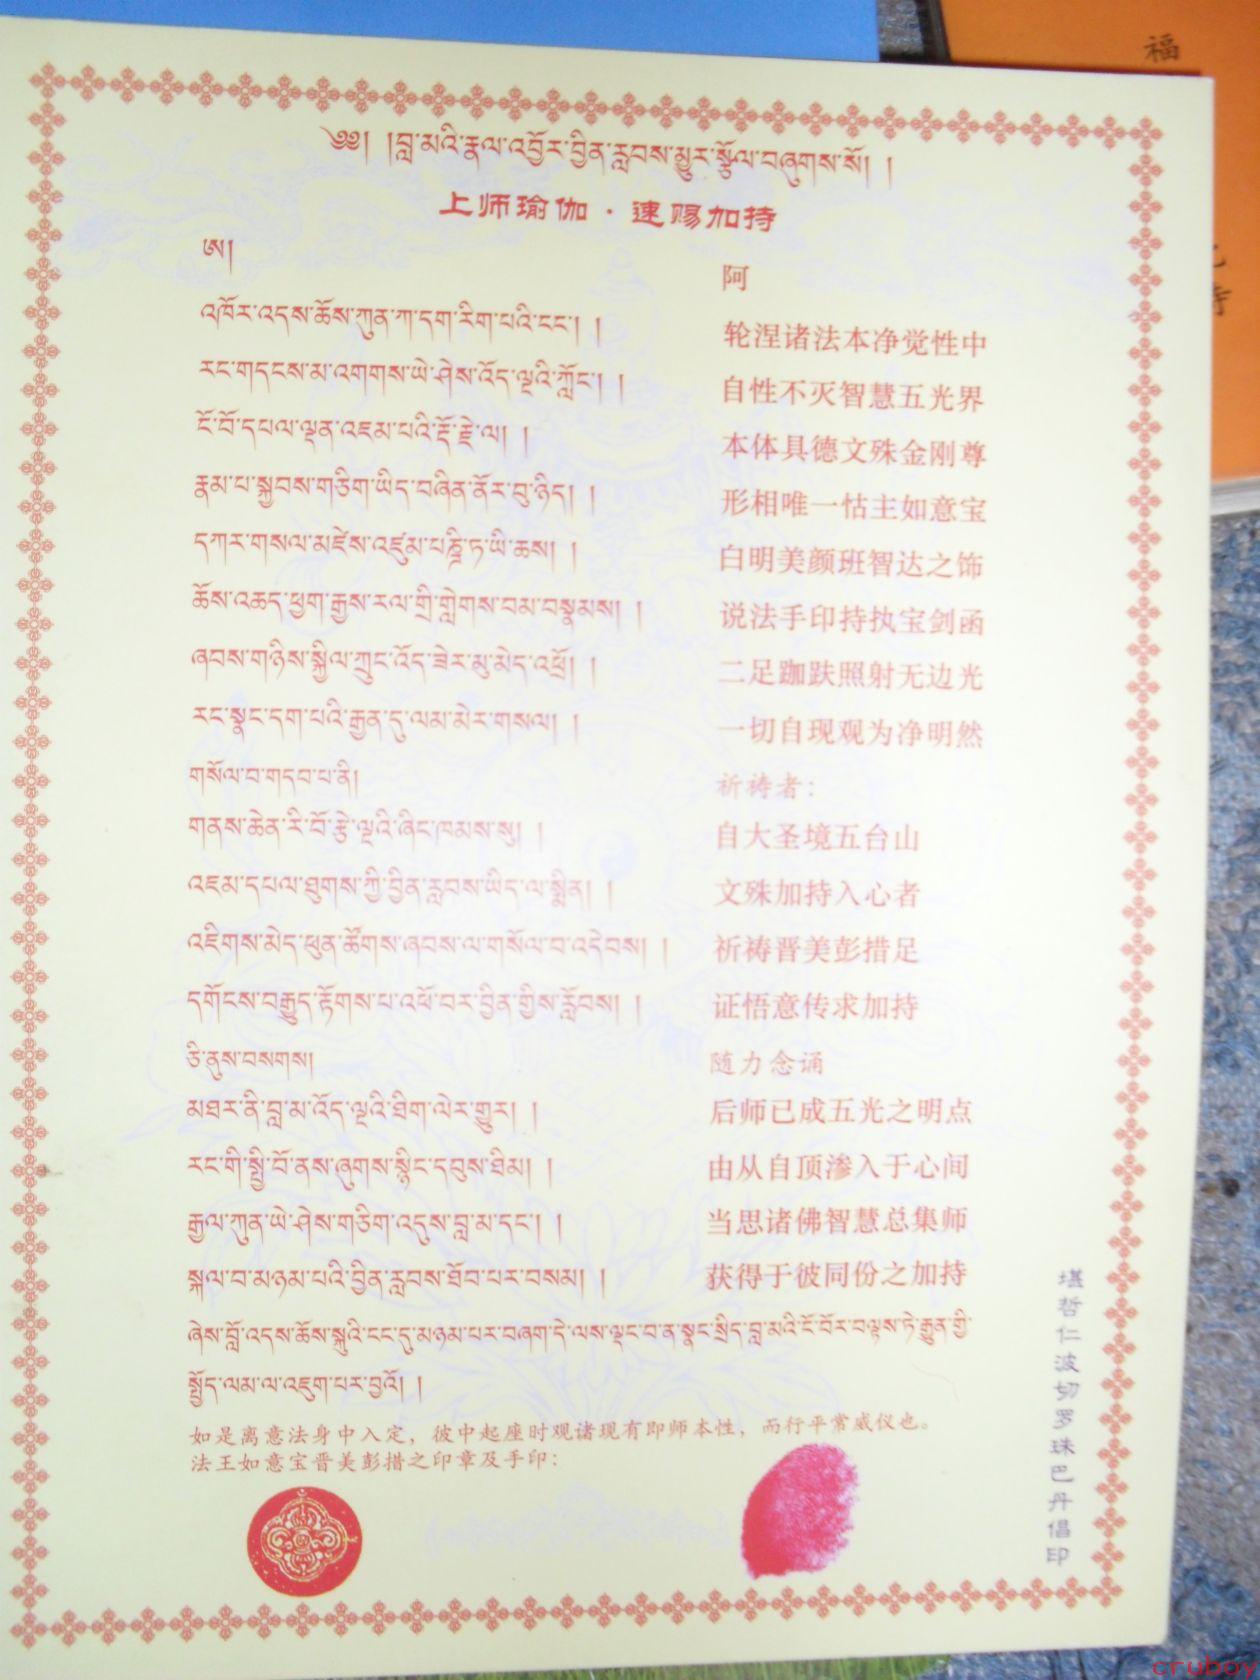 ༄༅། །བླ་མའི་རྣལ་འབྱོར་བྱིན་རླབས་མྱུར་སྩོལ་བཞུགས་སོ། །
上师瑜伽·速赐加持
ཨ།
阿
འཁོར་འདས་ཆོས་ཀུན་ཀ་དག་རིག་པའི་ངང་། །
轮涅诸法本净觉性中
རང་གདངས་མ་འགགས་ཡེ་ཤེས་འོད་ལྔའི་ཀློང་། །
自性不灭智慧五光界
ངོ་བོ་དཔལ་ལྡན་འཇམ་པའི་རྡོ་རྗེ་ལ། །
本体具德文殊金刚尊
རྣམ་པ་སྐྱབས་གཅིག་ཡིད་བཞིན་ནོར་བུ་ཉིད། །
形相唯一怙主如意宝
དཀར་གསལ་མཛེས་འཛུམ་པཎྜི་ཏ་ཡི་ཆས། །
白明美颜班智达之饰
ཆོས་འཆད་ཕྱག་རྒྱས་རལ་གྲི་གླེགས་བམ་བསྣམས། །
说法手印持执宝剑函
ཞབས་གཉིས་སྐྱིལ་ཀྲུང་འོད་ཟེར་མུ་མེད་འཕྲོ། །
二足跏趺照射无边光
རང་སྣང་དག་པའི་རྒྱན་དུ་ལམ་མེར་གསལ། །
一切自现观为净明然
གསོལ་བ་གདབ་པ་ནི།
祈祷者：
གནས་ཆེན་རི་བོ་རྩེ་ལྔའི་ཞིང་ཁམས་སུ། །
自大圣境五台山
འཇམ་དཔལ་ཐུགས་ཀྱི་བྱིན་རླབས་ཡིད་ལ་སྨིན། །
文殊加持入心者
འཇིགས་མེད་ཕུན་ཚོགས་ཞབས་ལ་གསོལ་བ་འདེབས། །
祈祷晋美彭措足
དགོངས་བརྒྱུད་རྟོགས་པ་འཕོ་བར་བྱིན་གྱིས་རློབས། །
证悟意传求加持
ཅི་ནུས་བསགས།
随力念诵
མཐར་ནི་བླ་མ་འོད་ལྔའི་ཐིག་ལེར་གྱུར། །
后师已成五光之明点
རང་གི་སྤྱི་བོ་ནས་ཞུགས་སྙིང་དབུས་ཐིམ། །
由从自顶渗入于心间
རྒྱལ་ཀུན་ཡེ་ཤེས་གཅིག་འདུས་བླ་མ་དང་། །
当思诸佛智慧总集师
སྐལ་བ་མཉམ་པའི་བྱིན་རླབས་ཐོབ་པར་བསམ། །
获得于彼同份之加持
ཞེས་བློ་འདས་ཆོས་སྐུའི་ངང་དུ་མཉམ་པར་བཞག་དེ་ལས་ལྡང་བ་ན་སྣང་སྲིད་བླ་མའི་ངོ་བོར་བལྟས་ཏེ་རྒྱུན་གྱི་
སྤྱོད་ལམ་ལ་འཇུག་པར་བྱའོ། །
如是离意法身中入定，彼中起座时观诸现有即师本性，而行平常威仪也。
法王如意宝晋美彭措之印章及手印：
堪哲仁波切罗珠巴丹倡印
福
寺
cruboy